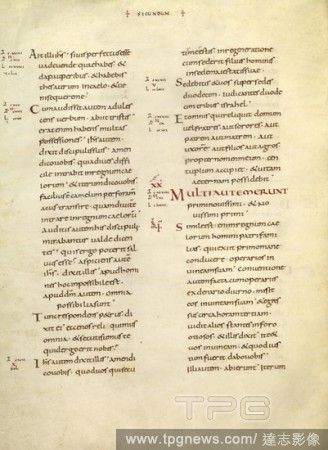 SECUNDUM
Ait illi ihs si vis perfectus esse
vade vende quae habes &
da pauperibus & habebis
thesaurum in caelo & veni
sequere me
Cum audisset autem adules
cens verbum abiit tristis
erat enim habens multas
possessiones ihs autem
dixit discipulis suis amen
dico vobis quia dives diffi
cile intrabit in regnum cae
lorum & iterum dico vobis
facilius est camelum per foramen
acus transire quam divitem
intrare in regnum caelorum
Auditis autem his discipuli
mirabantur valde dicen
tes quis ergo poterit sal
vus esse aspiciens autem
ihs dixit illis apud homi
nes hoc impossibile est
apud dm autem omnia
possibilia sunt
Tunc respondens petrus di
xit ei ecce nos reliquimus
omnia & secuti sumus te
quid ergo erit nobis
Ihs autem dixit illis amen di
co vobis quod vos qui secuti
me estis in regeneratione
cum sederit filius hominis
in sede maiestatis suae
Sedebitis & vos super sedes
duodecim iudicantes duode
cim tribus israhel
Et omnis qui reliquit domum
vel fratres aut sorores aut
patrem aut matrem aut
uxorem aut filios aut agros
propter nomen meum cen
tuplum accipiet & vitam
aeternam possidebit
XX
MULTI AUTEM ERUNT
primi novissimi & no
vissimi primi
Simile est enim regnum cae
lorum homini patri fami
lias qui exiit primo mane
conducere operarios in
vineam suam conventione
autem facta cum operariis
ex denario diurno misit
eos in vineam suam & egres
sus circa horam tertiam
vidit alios stantes in foro
otiosos & illis dixit ite &
vos in vineam & quod ius
tum fuerit dabo vobis
Illi autem abierunt iterum
TPG
www.tpgnews.com/達志影像